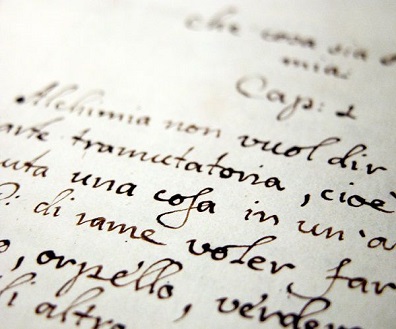 che cosa sia
mia.
Cap: 1
Alchimia non vuol dir
arte tramutatoria, cioè
una cosa in un'a
di rame voler far
, orpello, verdera
li altr